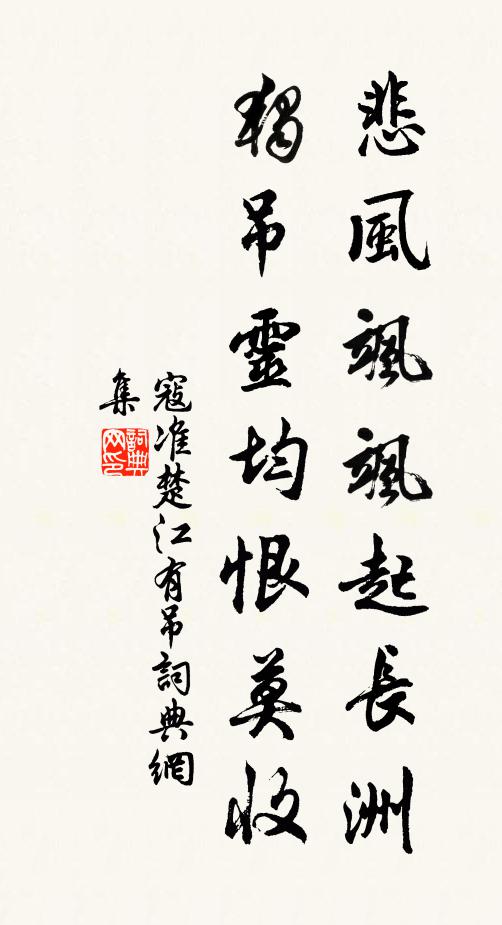 悲風颯颯起長洲
獨吊靈均恨莫收
寇准楚江有吊詞典網
集
詞典网印